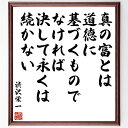 真の富とは
道徳に
基づくもので
なければ
決して永くは
続かない
渋沢栄一